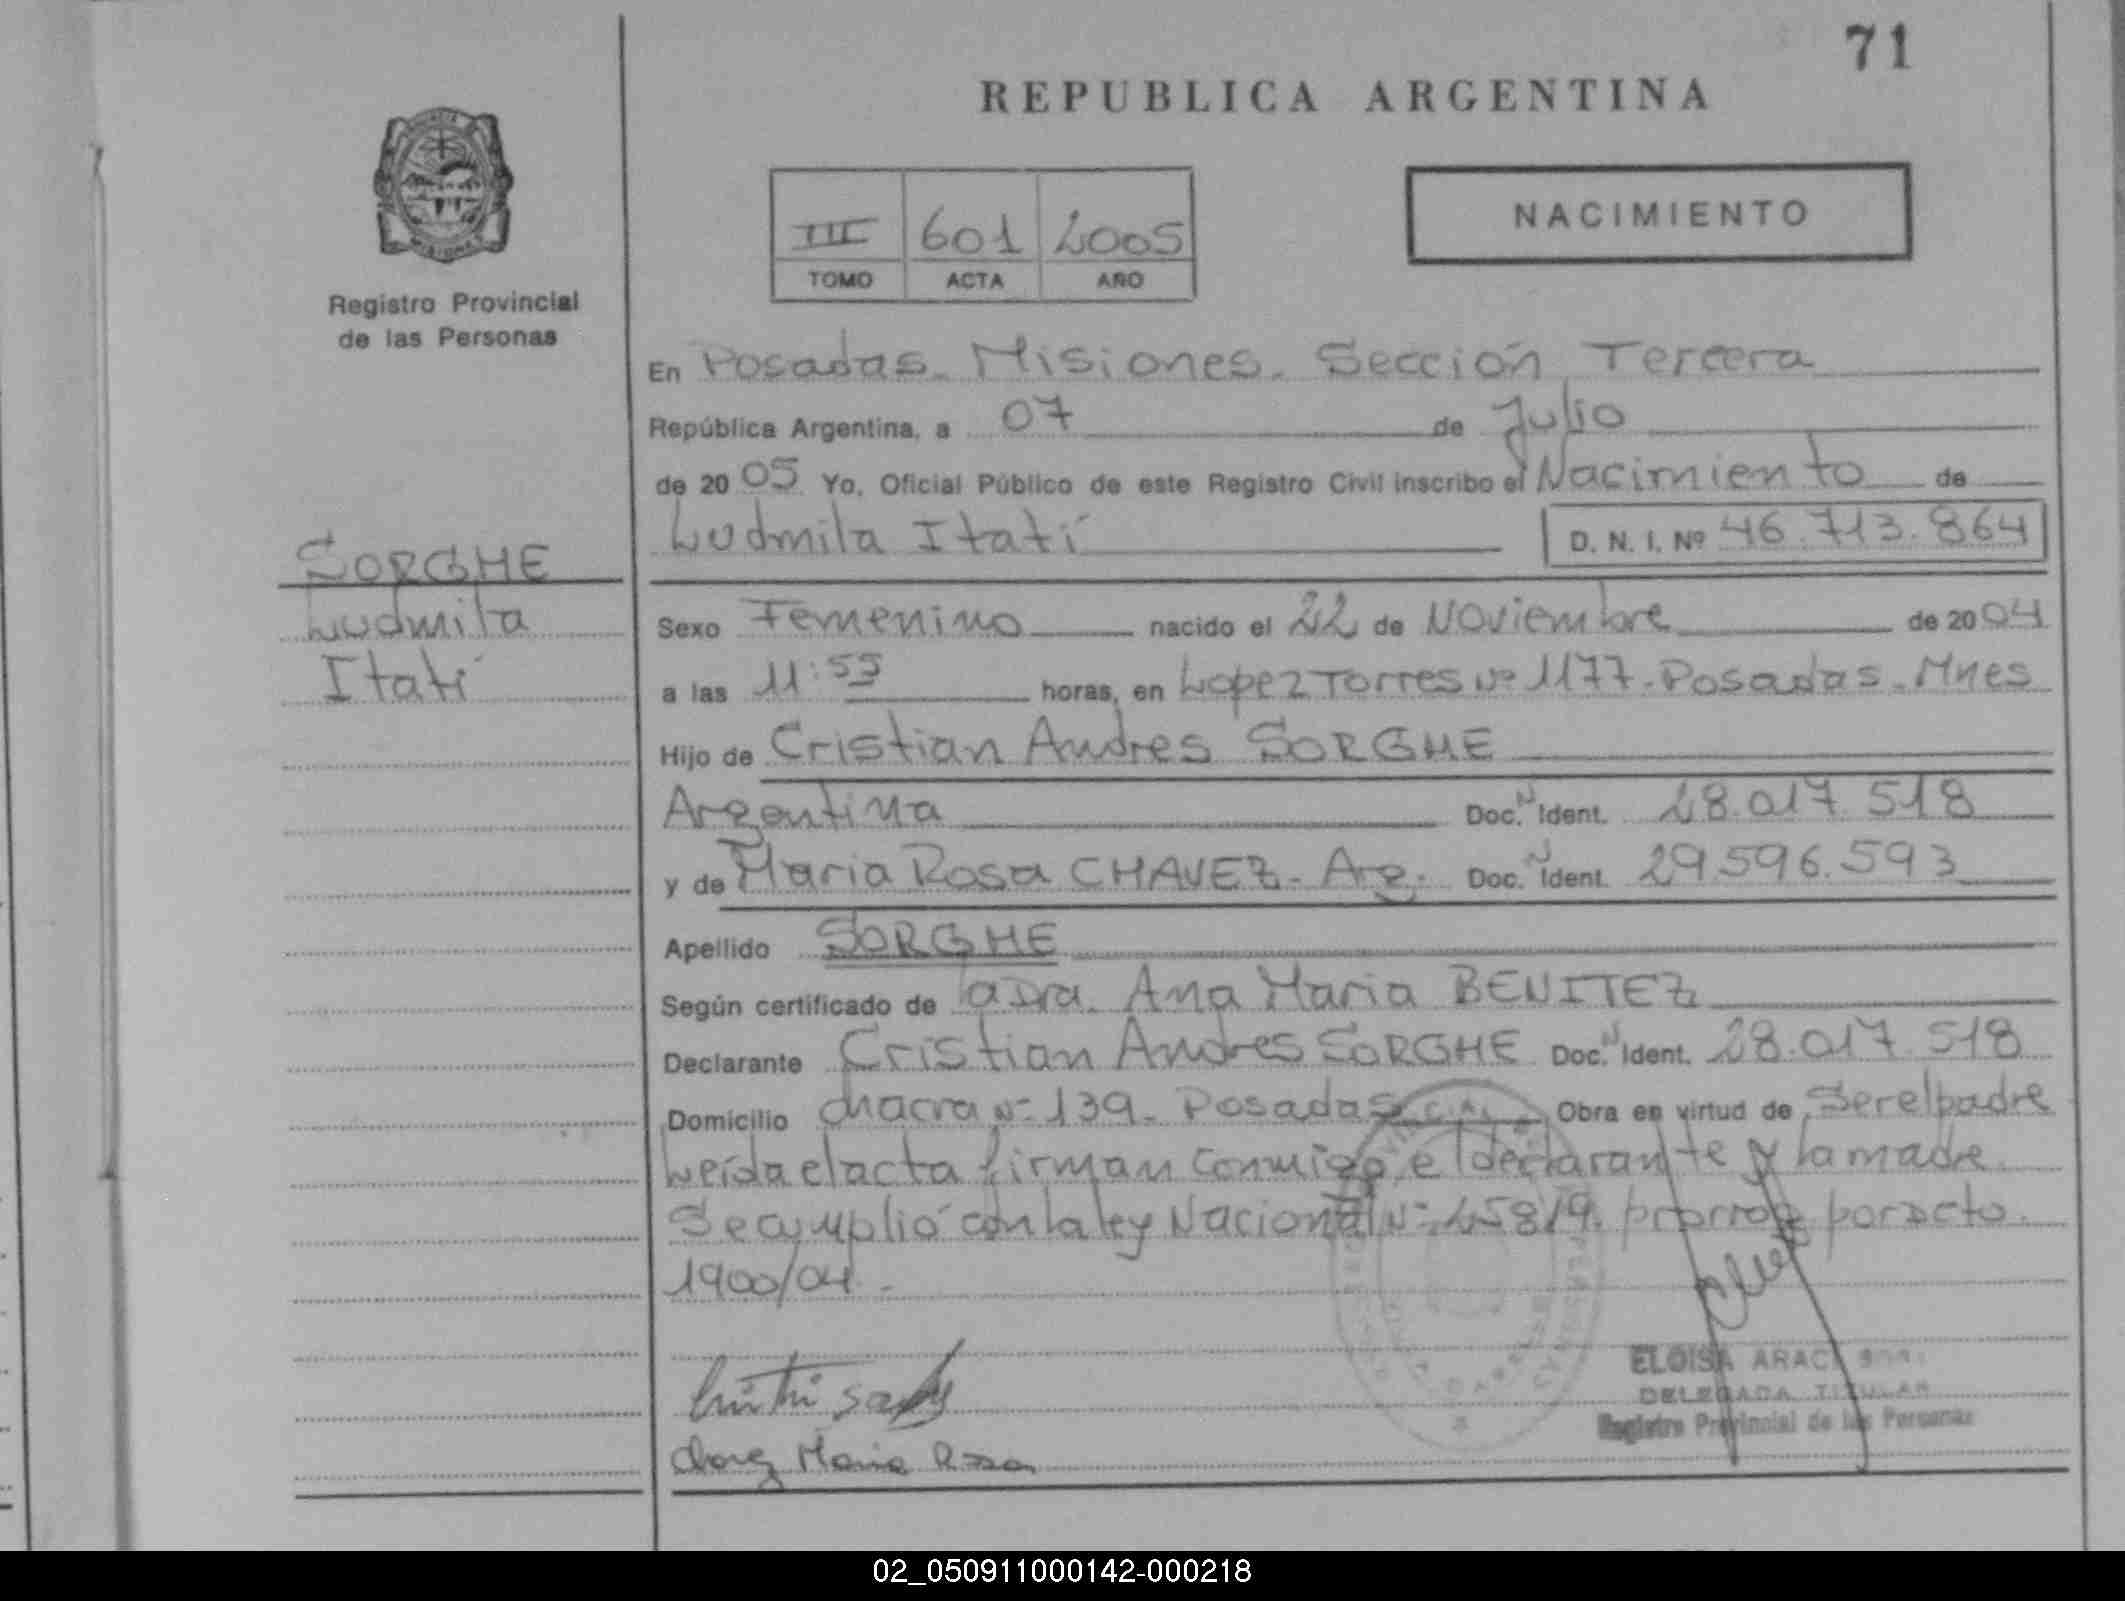 71
REPUBLICA ARGENTINA
NACIMIENTO
III 601 2005
TOMO ACTA AÑO
MISIONES
Registro Provincial
de las Personas
En Posadas. Misiones. Sección Tercera
República Argentina, a 07 de Julio
de 2005 Yo, Oficial Público de este Registro Civil inscribo el Nacimiento de
Ludmila Itatí D. N. I. Nº 46.713.864
SORGHE
Ludmila
Itatí
Sexo Femenino nacido el 22 de Noviembre de 2004
a las 11:55 horas, en Lopez Torres Nº 1177. Posadas. Mnes
Hijo de Cristian Andres SORGHE
Argentina Doc. N Ident. 28.017.518
y de Maria Rosa CHAVEZ. Arg. Doc. N Ident. 29.596.593
Apellido SORGHE
Según certificado de la Dra. Ana Maria BENITEZ
Declarante Cristian Andres SORGHE Doc. N Ident. 28.017.518
Domicilio chacra Nº 139. Posadas Obra en virtud de Ser el padre
Leída el acta firman conmigo el declarante y la madre
Se cumplió con la ley Nacional Nº 25819. prorrog por Dcto.
1900/04.-
ELOISA
DELEGADA TITULAR
Registro Provincial de las Personas
Maria Rosa
02_050911000142-000218